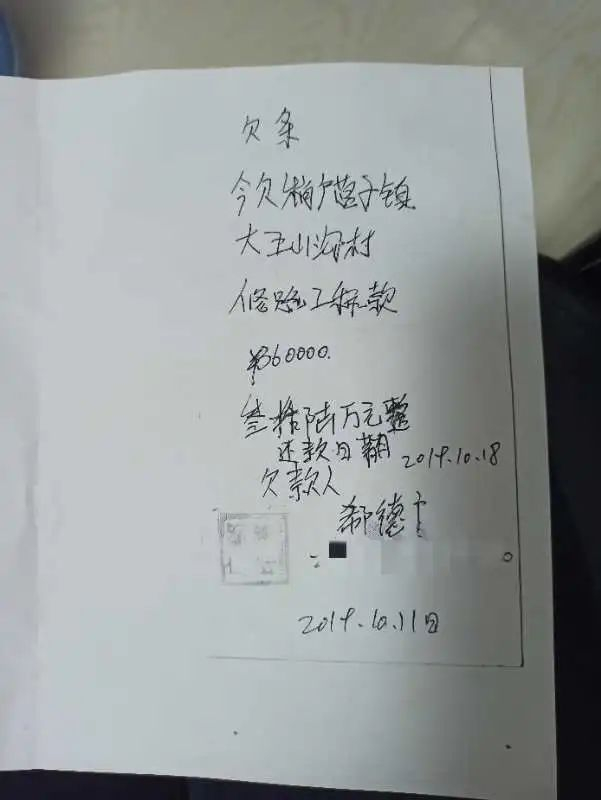 欠条
今欠梢户营子镇
大玉山沟村
修路工程款
¥360000.
叁拾陆万元整
还款日期 2019.10.18
欠款人
郗德
2019.10.11日